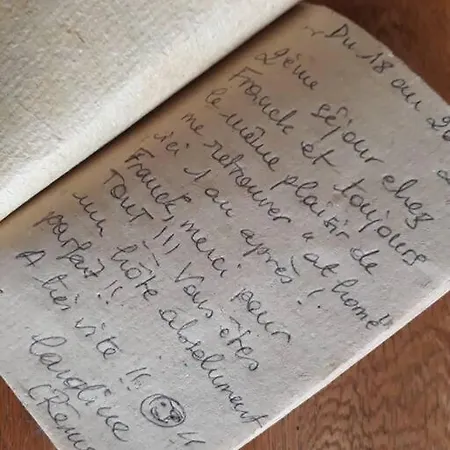 Du 18 au 20
2ème séjour chez
Franck et toujours
le même plaisir de
me retrouver "at home"
ici 1 an après !
Franck, merci pour
TOUT !!! Vous êtes
un hôte absolument
parfait !!
A très vite !!
Caroline